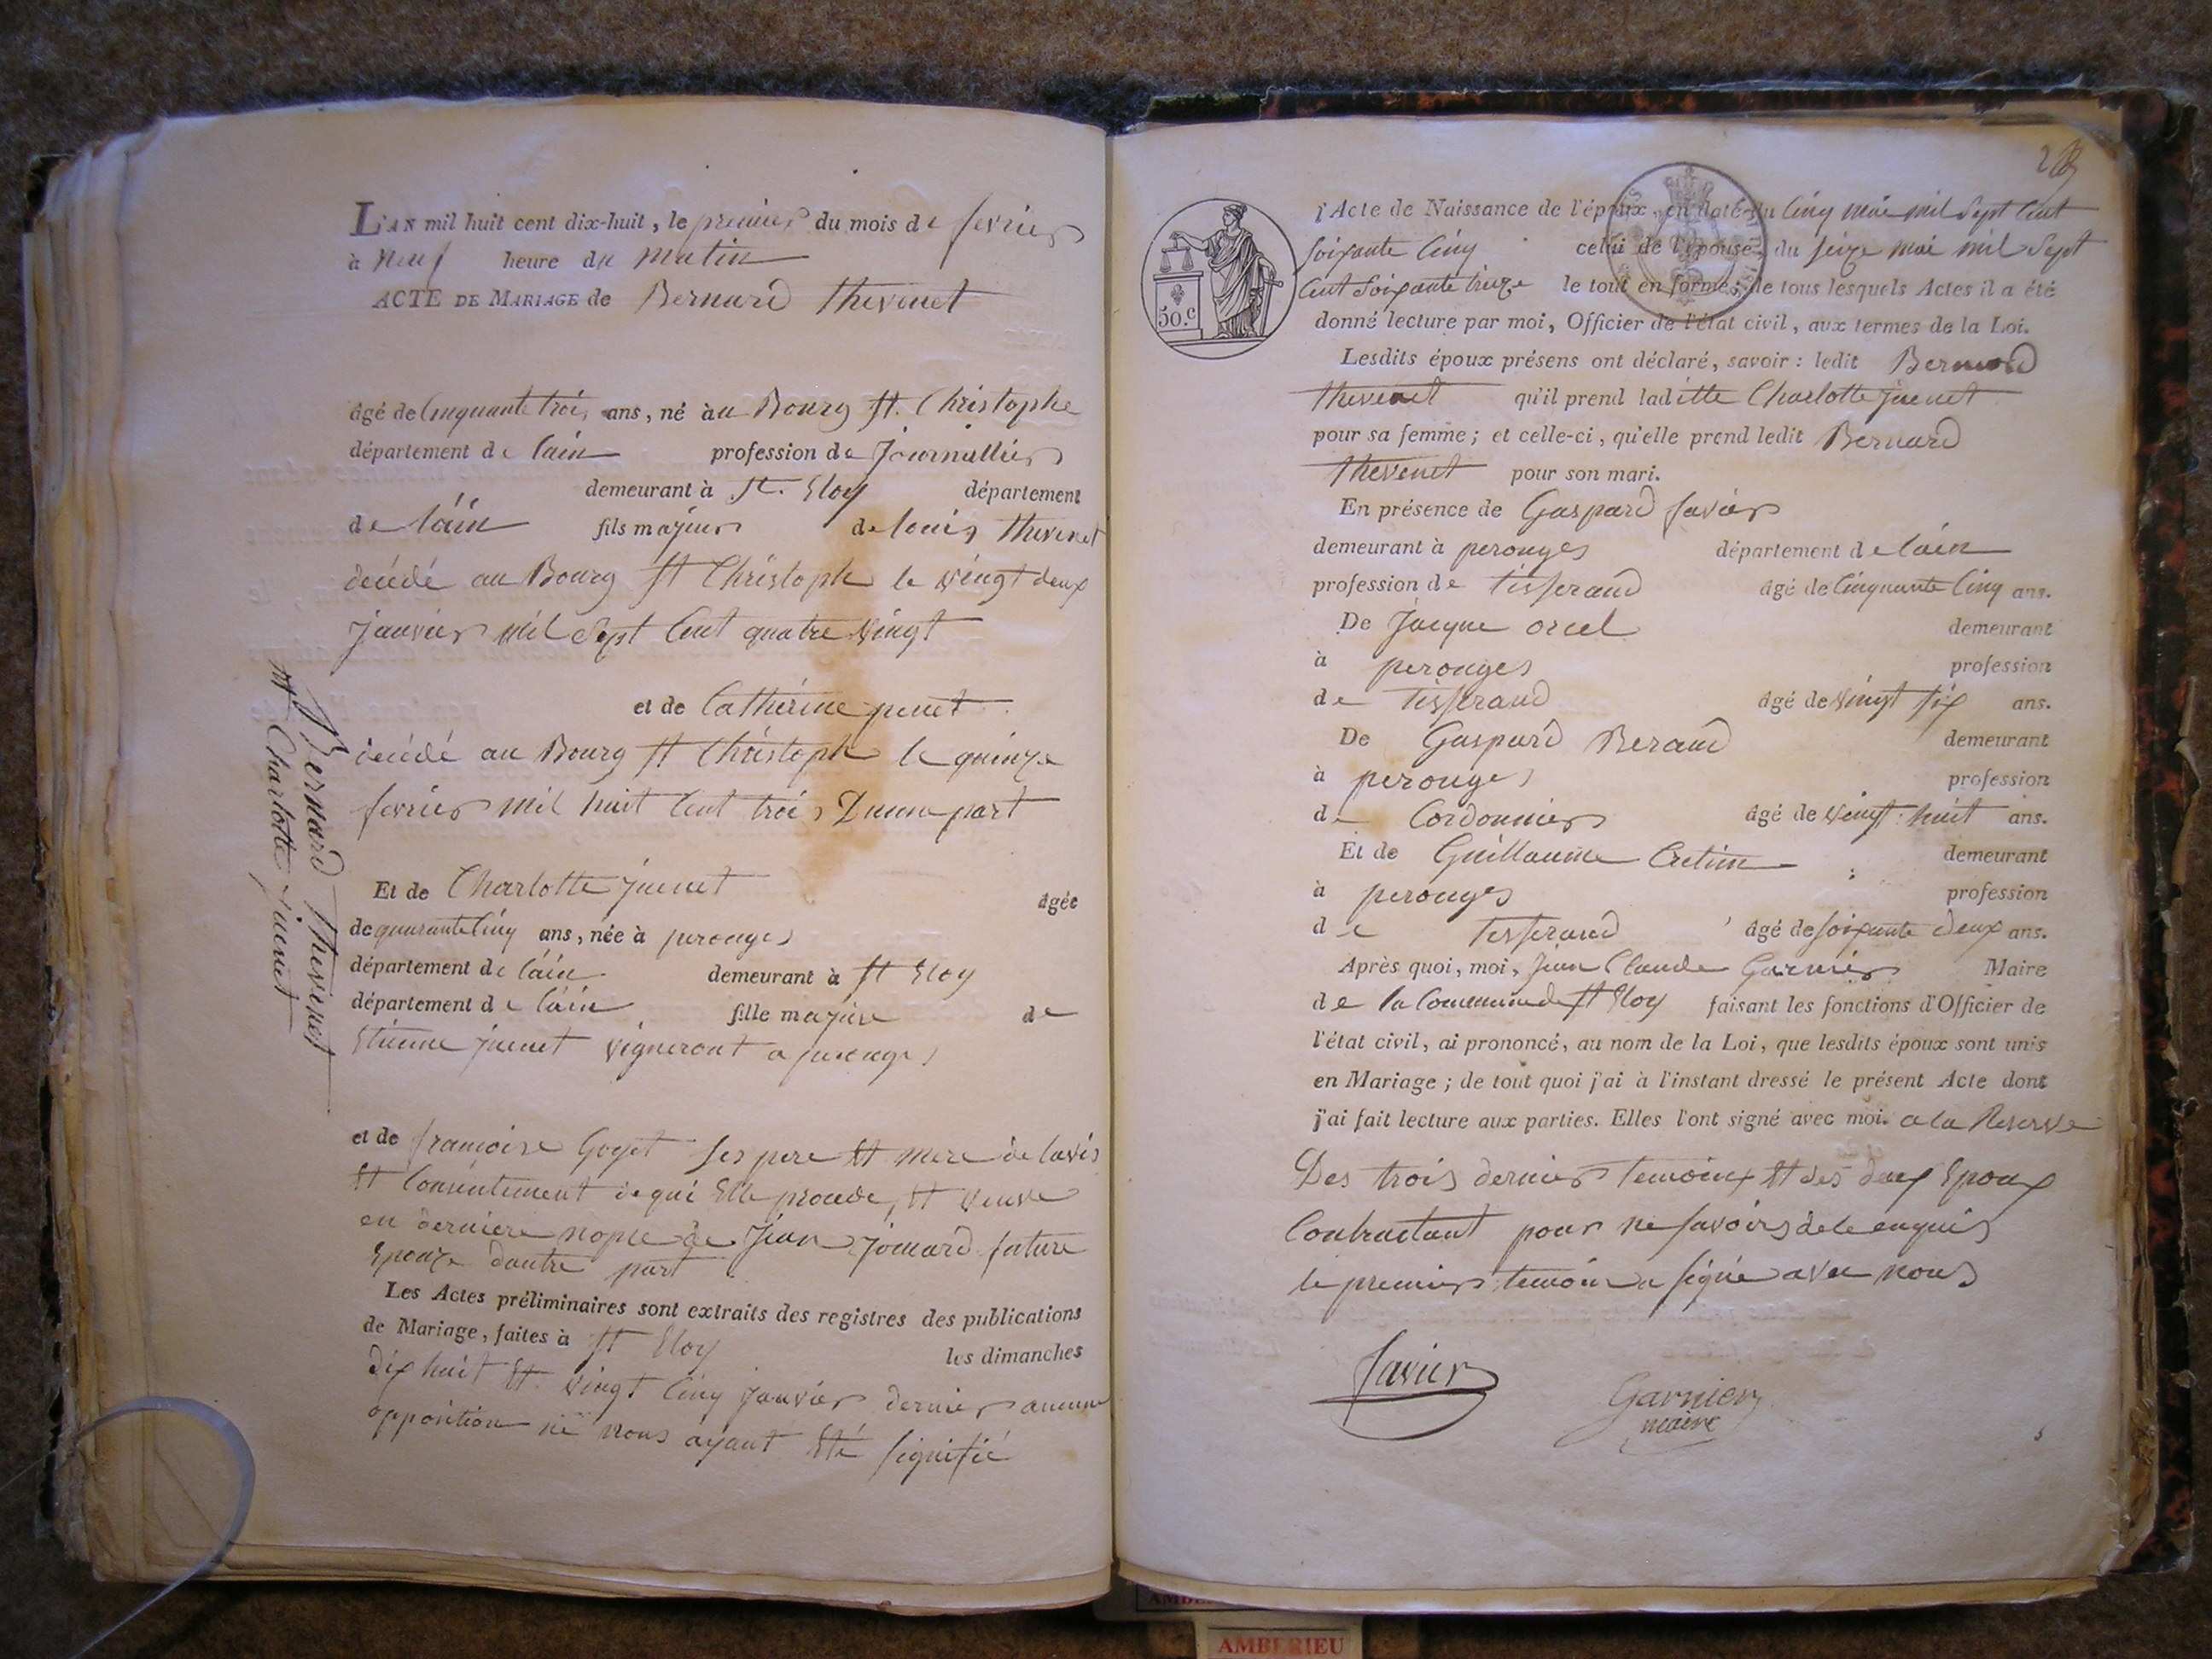 L'AN mil huit cent dix-huit, le premier du mois de fevrier
à Neuf heure du Matin
ACTE DE MARIAGE de Bernard thevenet
âgé de Cinquante trois ans, né àu Bourg St. Christophe
département de lain profession de Journallier
demeurant à St. Eloy département
de láin fils majeur de louis thevenet
décédé au Bourg St Christoph le vingt deux
janvier mil Sept Cent quatre vingt
et de Catherine penet
décédé au Bourg St Christoph le quinze
fevrier mil huit Cent trois Dunne part
Et de Charlotte juenet âgée
de quarante Cinq ans, née à perouges
département de láin demeurant à St Eloy
département de láin fille majeure de
Etienne juenet vigneront a perouges
et de francoise Goyet ses pere Et mere de lavis
Et Consentement de qui Elle procede, Et veuve
en derniere nopce de Jean jomard future
Epouze dautre part
Les Actes préliminaires sont extraits des registres des publications
de Mariage, faites à St Eloy les dimanches
dix huit Et vingt Cinq janvier dernier aucune
opposition ne nous ayant Eté signifié
Bernard Thevenet
Et Charlotte juenet
50.c
l'Acte de Naissance de l'époux, en date du Cinq mai mil Sept Cent
soixante Cinq celui de l'épouse, du seize mai mil Sept
Cent Soixante treize le tout en formes; de tous lesquels Actes il a été
donné lecture par moi, Officier de l'état civil, aux termes de la Loi.
Lesdits époux présens ont déclaré, savoir : ledit Bernard
thevenet qu'il prend laditte Charlotte juenet
pour sa femme; et celle-ci, qu'elle prend ledit Bernard
thevenet pour son mari.
En présence de Gaspard Savier
demeurant à perouges département de láin
profession de tisserand âgé de Cinquante Cinq ans.
De Jacque orcel demeurant
à perouges profession
de Tisserand âgé de vingt six ans.
De Gaspard Beraud demeurant
à perouges profession
de Cordonnier âgé de vingt huit ans.
Et de Guillaume Cretin demeurant
à perouges profession
de tisserand âgé de soixante deux ans.
Après quoi, moi, Jean Claude Garnier Maire
de la Commune de St Eloy faisant les fonctions d'Officier de
l'état civil, ai prononcé, au nom de la Loi, que lesdits époux sont unis
en Mariage; de tout quoi j'ai à l'instant dressé le présent Acte dont
j'ai fait lecture aux parties. Elles l'ont signé avec moi. a la Reserve
Des trois dernier temoins Et des deux Epoux
Contractant pour ne savoir de ce enquis
le premier temoin a signé avec nous
Savier
Garnier
maire
AMBERIEU